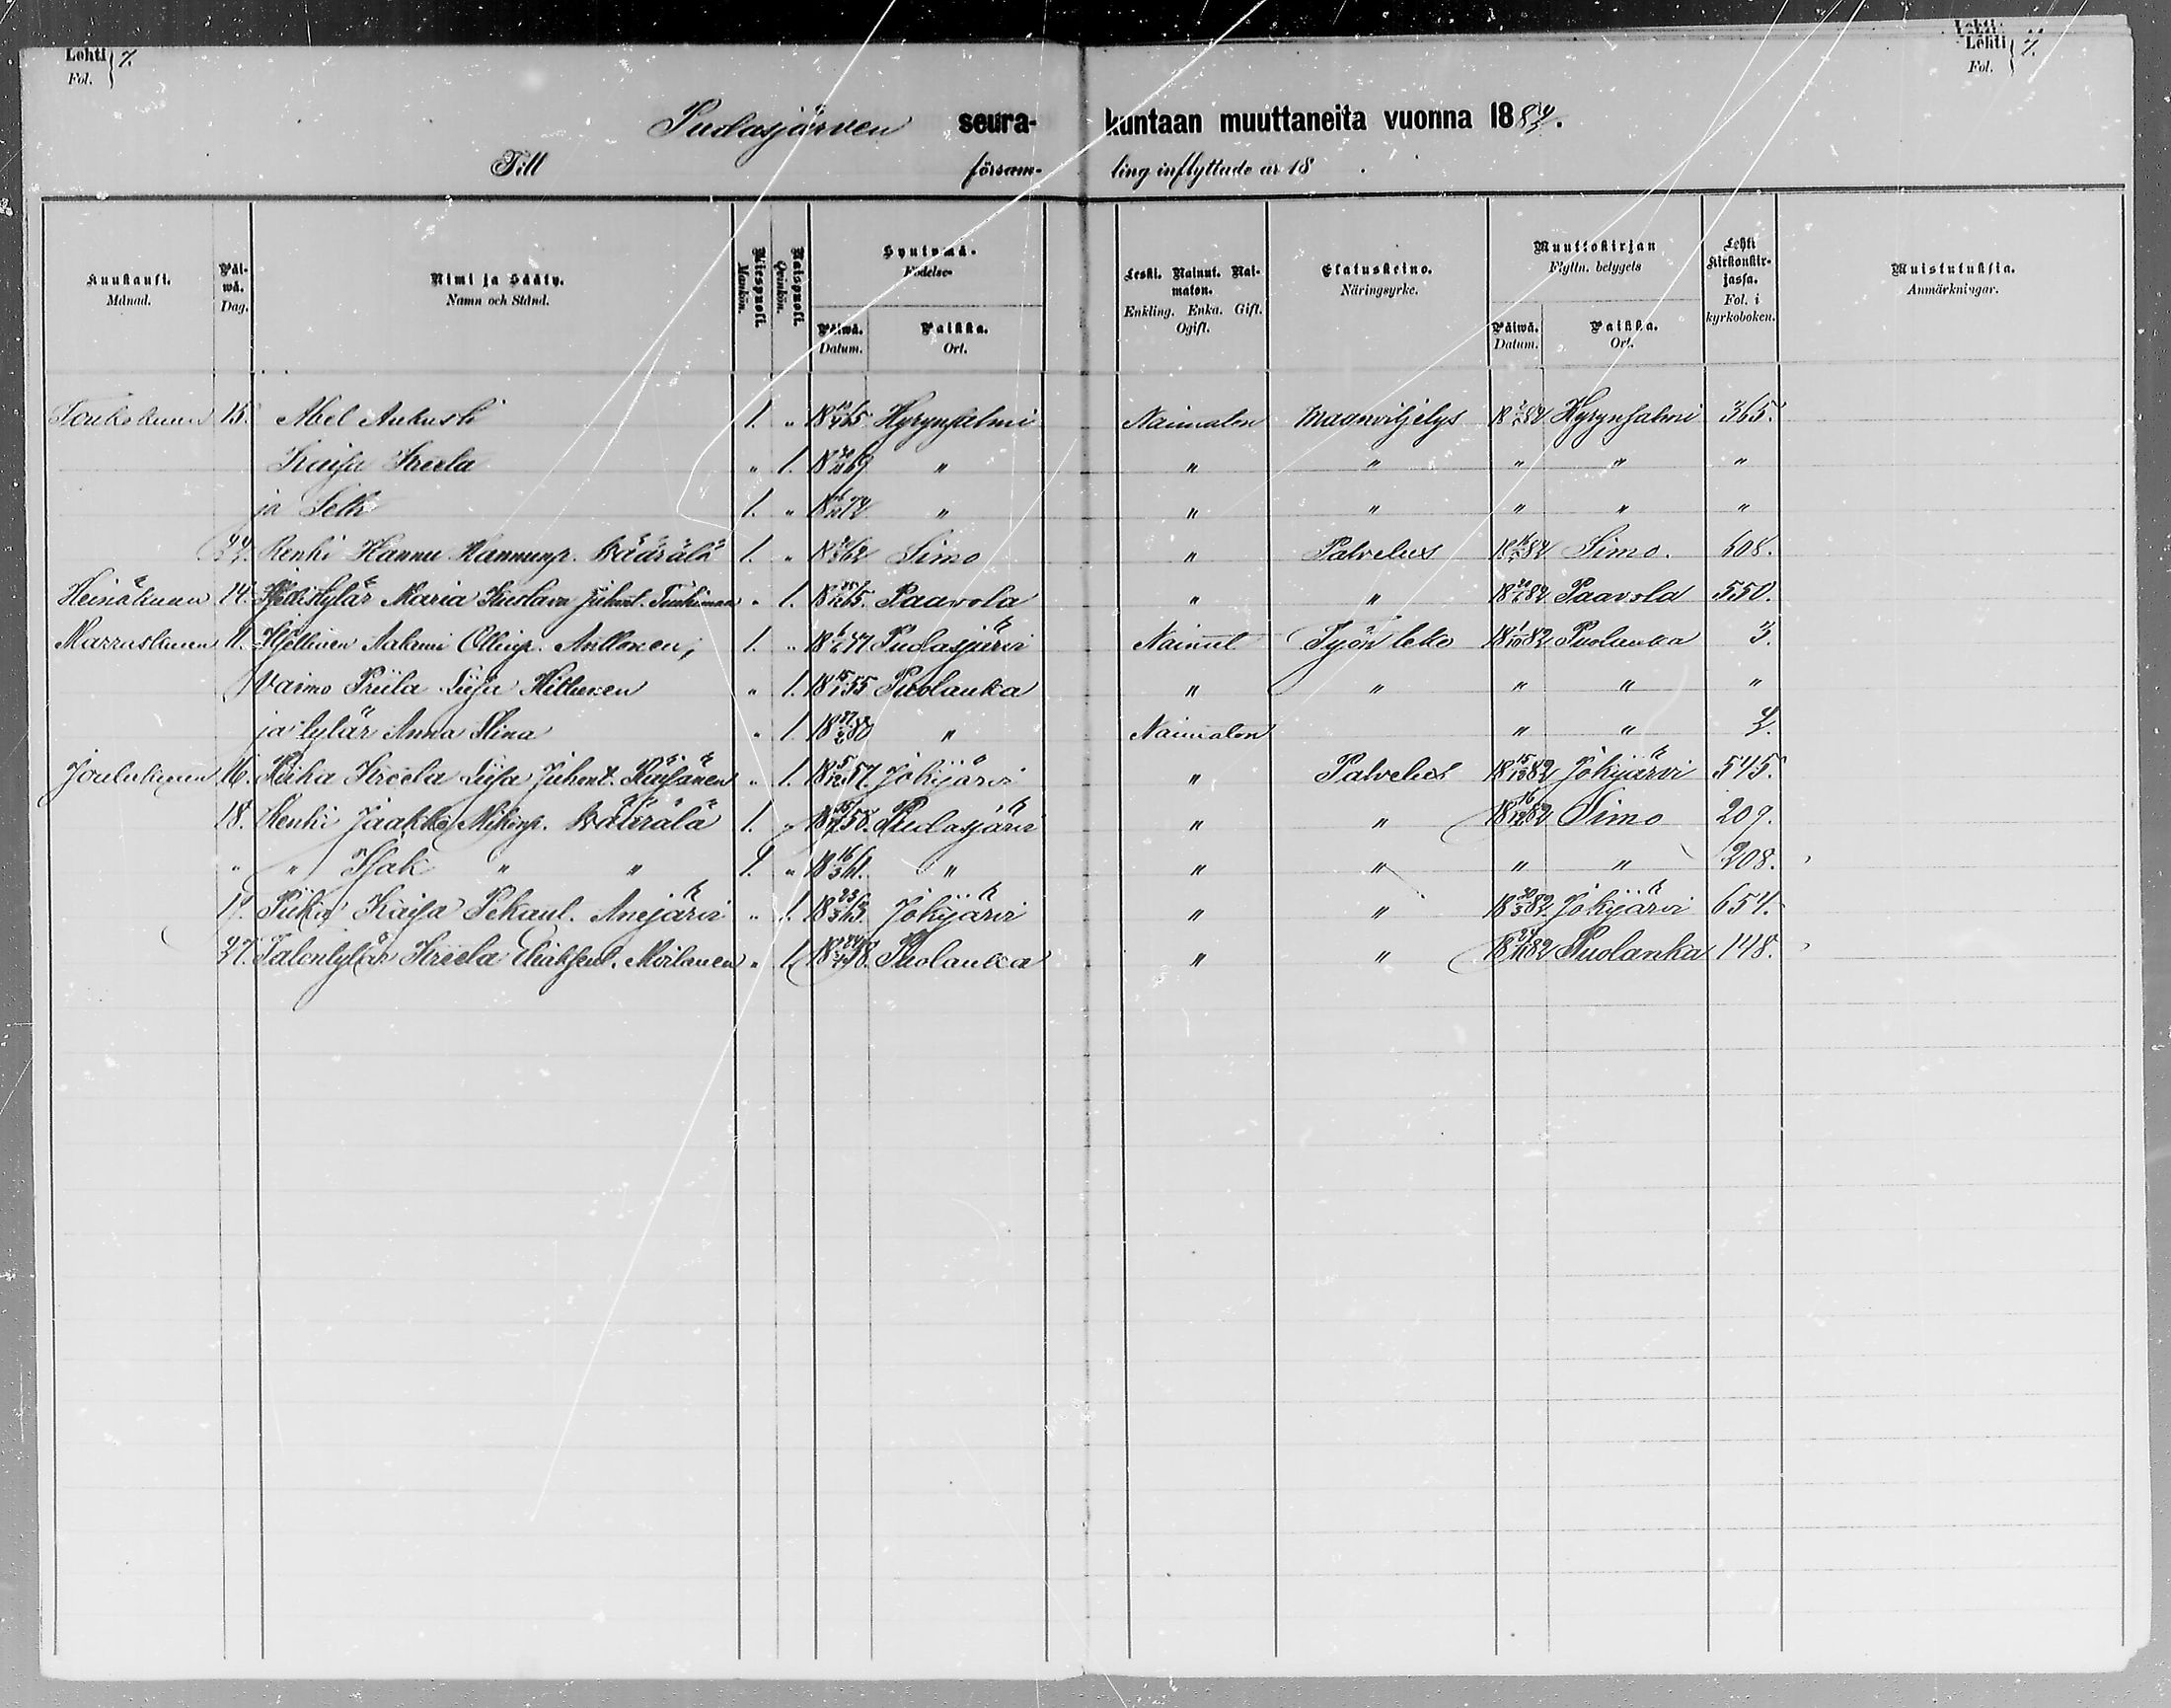 Lehti 7.
Fol.
Lehti 7.
Fol.
Pudasjärven seura- kuntaan muuttaneita vuonna 188
Till försam- ling inflyttade år 18 .
Kuukausi. Månad.
Päi-wä. Dag.
Nimi ja Sääty. Namn och Stånd.
Miespuoli. Mankön.
Naispuoli. Qvinkön.
Syntymä- Födelse-
Päiwä. Datum.
Paikka. Ort.
Leski. Nainut. Nai-maton. Enkling. Enka. Gift. Ogift.
Elatuskeino. Näringsyrke.
Muuttokirjan Flyttn. betygets
Päiwä. Datum.
Paikka. Ort.
Lehti kirkonkir-jassa. Fol. i kyrkoboken.
Muistutuksia. Anmärkningar.
Toukokuun 15. Abel Aukusti 1. " Hyrynsalmi Naimaton Maanviljelys Hyrynsalmi 365.
Kaisa Kreeta " 1. " " " " " "
ja Seth 1. " " " " " " "
Renki Hannu Hannunp. Määrälä 1. " Simo " Palvelus Simo. 608.
Heinäkuun 14. Maria Kustava Juhont. " 1. Paavola " " Paavola 550.
Marraskuun 11. Itsellinen Aatami Ollinp. Anttonen, 1. " Pudasjärvi Nainut Työn teko 18 1/10 82 Puolanka 3.
Vaimo Priita Liisa " 1. Puolanka " " " " "
ja tytär Anna Stina " 1 " Naimaton " "
Joulukuun 16. Piika Kreeta Liisa Juhont. " 1. 18 5/12 57. Jokijärvi " Palvelus 18 15/12 82 Jokijärvi 545.
18. Renki Jaakko Mikonp. Määrälä 1. " Pudasjärvi " " 18 16/12 82 Simo 209.
" " Isak " " 1. " 18 16/3 61. " " " " " 208.
19. Piika Kaisa Pekant. Anejärvi " 1. 18 23/3 63. Jokijärvi " " Jokijärvi 654.
27. Talontytär Kreeta Moilanen " 1. Puolanka " " 18 24/11 82 Puolanka 148.